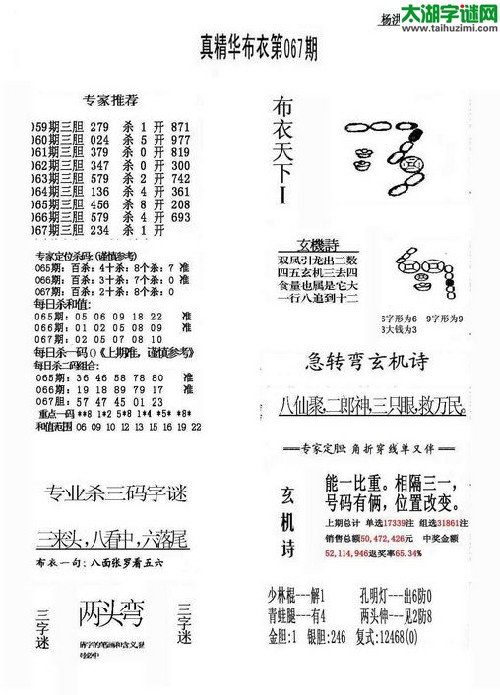 杨洪
太湖字谜网
www.taihuzimi.com
真精华布衣第067期
专家推荐
059期三胆 279 杀 1 开 871
060期三胆 024 杀 5 开 977
061期三胆 379 杀 0 开 819
062期三胆 347 杀 0 开 300
063期三胆 579 杀 2 开 742
064期三胆 136 杀 4 开 361
065期三胆 456 杀 8 开 208
066期三胆 579 杀 4 开 693
067期三胆 234 杀 1 开
专家定位杀码:(谨慎参考)
065期: 百杀:4十杀: 8个杀: 7 准
066期: 百杀:3十杀: 2个杀: 0 准
067期: 百杀:2十杀: 8个杀: 0
每日杀和值:
065期: 05 06 09 18 22 准
066期: 01 02 05 08 09 准
067期: 02 05 07 08 10
每日杀一码()《上期准, 谨慎参考》
每日杀二码组合:
065期: 36 46 58 78 80 准
066期: 19 18 89 79 17 准
067期: 57 47 45 01 23
重点一码:**8 1*2 5*8 1*4 5* *8*
和值范围 06 09 10 12 13 15 16 19 22
专业杀三码字谜
三来头,八看中,六落尾
布衣一句: 八面张罗看五六
三字谜
两头弯
猜字的笔画和含义,显
奇必中
三字谜
布衣天下Ⅰ
玄機詩
双凤引龙出二数
四五玄机三去四
食量也属是它大
一行八追到十二
6字形为6 9字形为9
3大钱为3
急转弯玄机诗
八仙聚,二郎神,三只眼,救万民。
==专家定胆: 角折穿线单叉伴==
玄机诗
能一比重。相隔三一,
号码有俩, 位置改变。
上期总计 单选17339注 组选31861注
销售总额50,472,426元 中奖金额
52,114,946返奖率65.34%
少林棍---解1 孔明灯---出6防0
青蛙腿---有4 两头伸---见2防8
金胆:1 银胆:246 复式:12468(0)